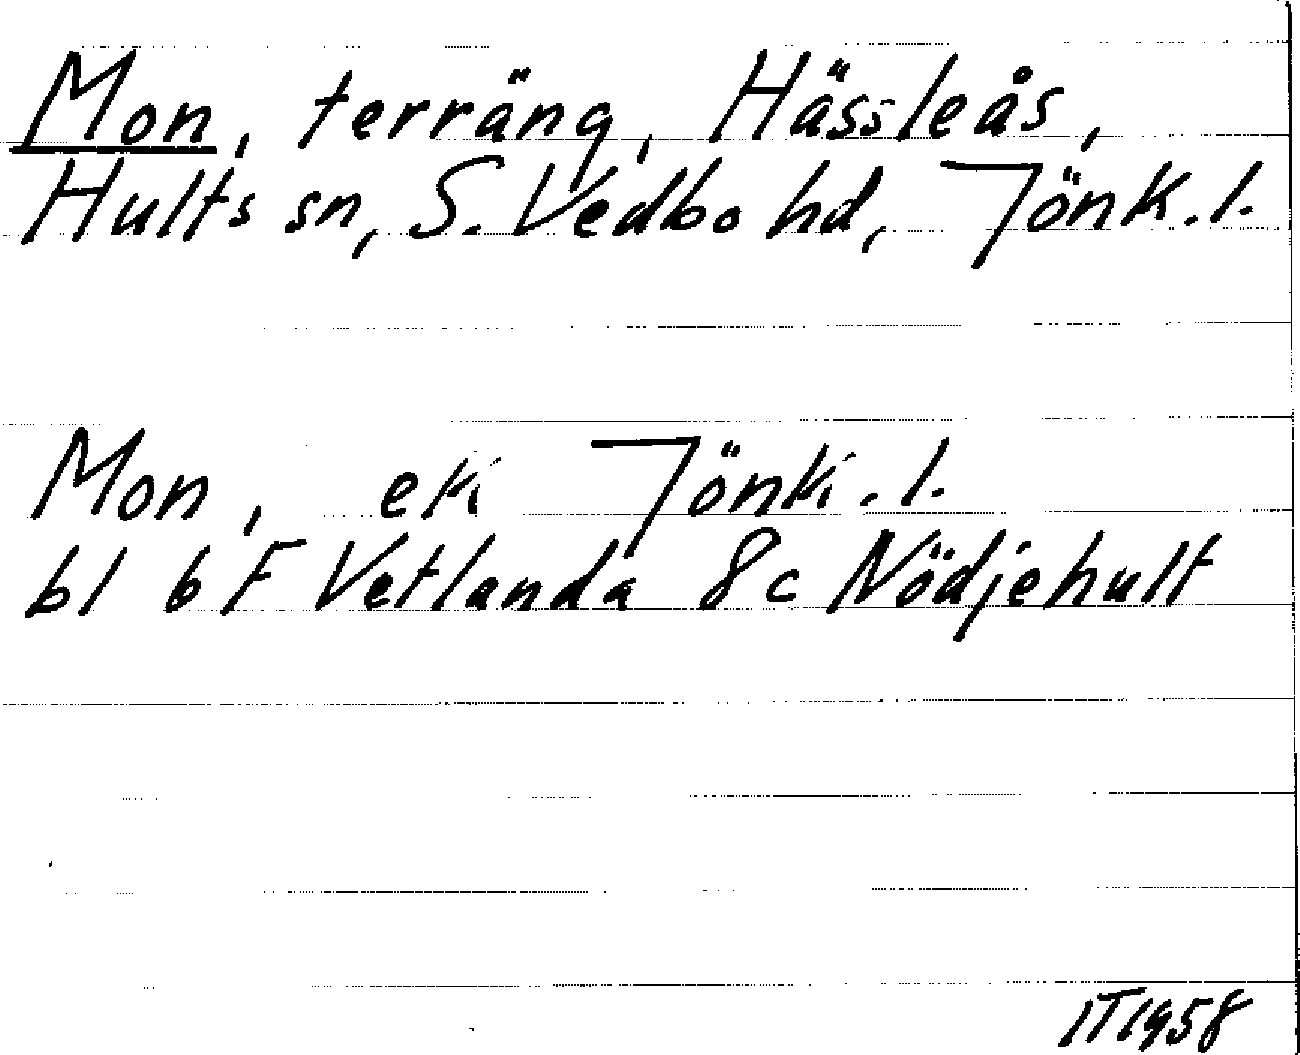 Mon, terräng, Hässleås,
Hults sn, S. Vedbo hd, Jönk. l.
Mon, ek Jönk. l.
bl 6 F Vetlanda 8c Nödjehult
IT 1958